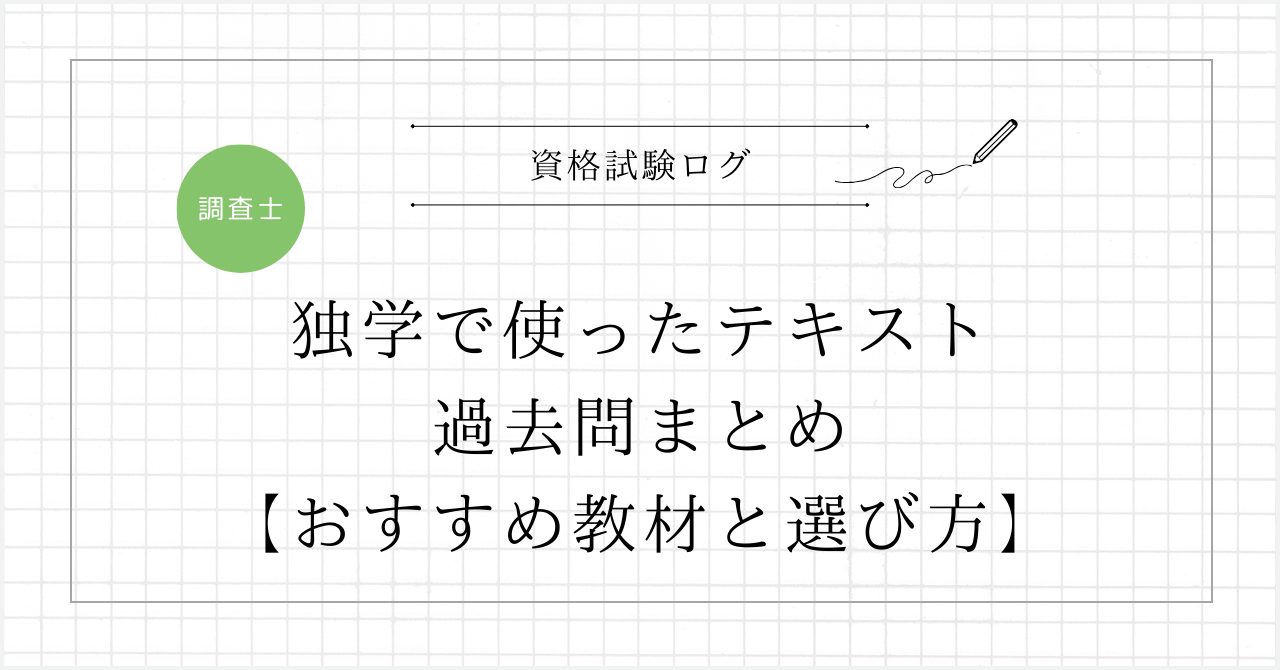 資格試験ログ
調査士
独学で使ったテキスト
過去問まとめ
【おすすめ教材と選び方】